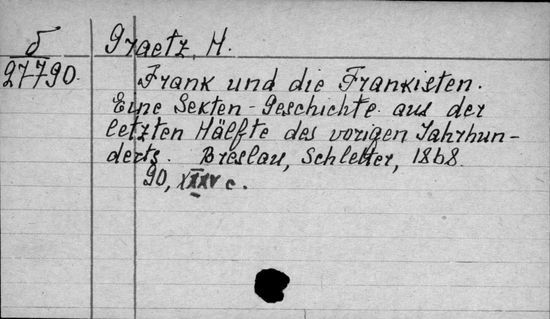 δ
27790.
Graetz, H.
Frank und die Frankisten.
Eine Sekten-Geschichte aus der
letzten Hälfte des vorigen Jahrhun-
derts. Breslau, Schletter, 1868.
90, XXXV c.